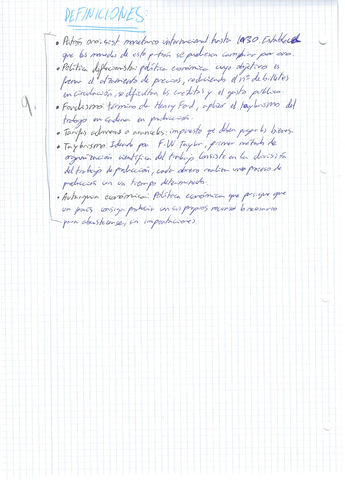 DEFINICIONES:
• Patrón oro: sist monetario internacional hasta 1930. Establece
que las monedas de este patrón se pudiesen cambiar por oro.
• Política deflacionista: política económica cuyo objetivo es
frenar el aumento de precios, reduciendo el nº de billetes
en circulación, se dificultan los créditos y el gasto público.
9. • Fordismo: término de Henry Ford, aplicar el taylorismo del
trabajo en cadena en producción.
• Tarifas aduaneras o aranceles: impuesto que deben pagar los bienes.
• Taylorismo: Ideado por F.W. Taylor, primer método de
organización científica del trabajo consiste en la división
del trabajo de producción, cada obrero realiza una proceso de
producción en un tiempo determinado.
• Autarquía económica: Política económica que persigue que
un país consiga producir con sus propios recursos lo necesario
para abastecerse, sin importaciones.